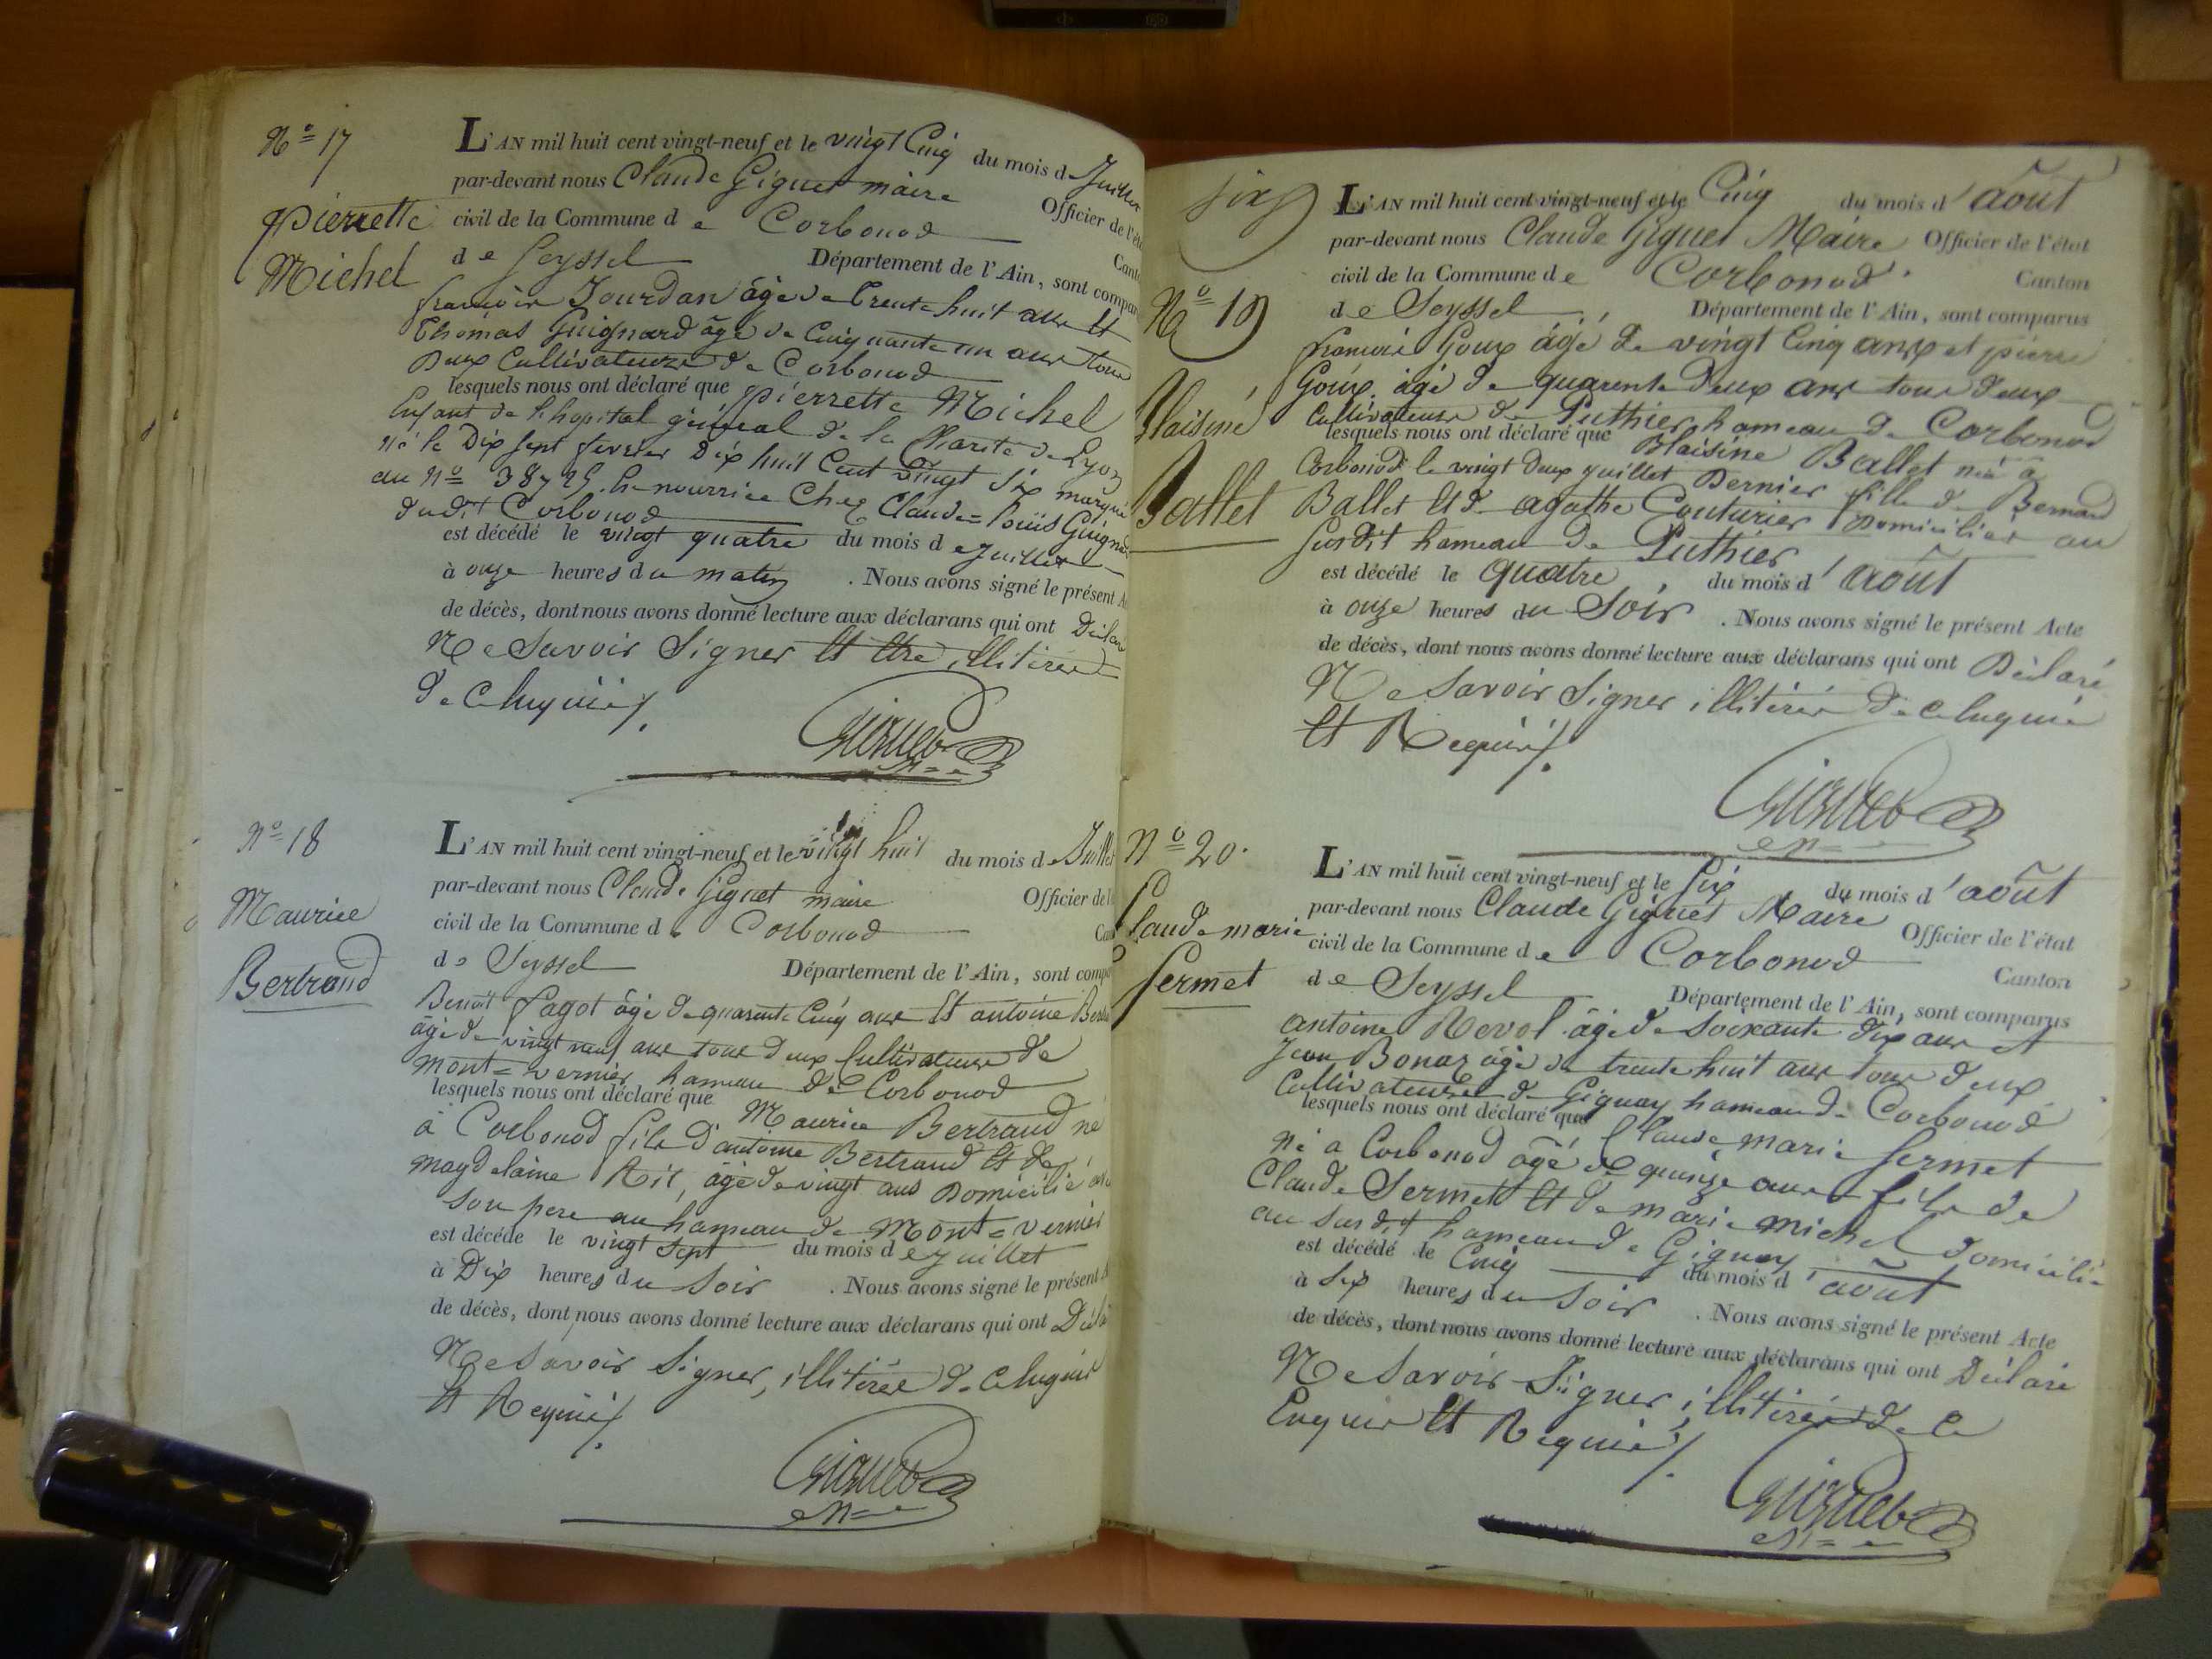 Nº 17
Pierrette
Michel
L'AN mil huit cent vingt-neuf et le vingt Cinq du mois de Juillet
par-devant nous Claude Giguet maire Officier de l'éta
civil de la Commune de Corbonod Cant
de Seyssel Département de l'Ain, sont compar
françois Jourdan âgé de trente huit ans Et
Thomas Guignard âgé de Cinquante un ans tous
Deux Cultivateurs de Corbonod
lesquels nous ont déclaré que pierrette Michel
Enfant de l'hopital général de la Charité de Lyon
né le Dix sept fevrier Dix huit Cent vingt Six marqué
au Nº en nourrice Chez Claude=louis Guignard
dudit Corbonod
est décédé le vingt quatre du mois de juillet
à onze heures du matin . Nous avons signé le présent A
de décès, dont nous avons donné lecture aux déclarans qui ont Déclaré
Ne Savoir Signer Et être illitéré
de ce Enquis
Giguet
Nº 18
Maurice
Bertrand
L'AN mil huit cent vingt-neuf et le vingt huit du mois de Juillet
par-devant nous Claude Giguet maire Officier de l
civil de la Commune de Corbonod Can
de Seyssel Département de l'Ain, sont compa
Benoit fagot âgé de quarante Cinq ans Et antoine Bertra
âgé de vingt neuf ans tous deux Cultivateurs de
Mont=vernier hameau de Corbonod
lesquels nous ont déclaré que Maurice Bertrand né
à Corbonod fils d'antoine Bertrand Et de
magdelaine Rit, âgé de vingt ans Domicilié
son pere au hameau de Mont=vernier
est décédé le vingt sept du mois de juillet
à Dix heures du Soir . Nous avons signé le présent A
de décès, dont nous avons donné lecture aux déclarans qui ont Décla
Ne Savoir Signer, illitéré de ce Enquis
Et Requis
Giguet
six
Nº 19
Blaisine
Ballet
L'AN mil huit cent vingt-neuf et le Cinq du mois d'août
par-devant nous Claude Giguet Maire Officier de l'état
civil de la Commune de Corbonod Canton
de Seyssel Département de l'Ain, sont comparus
françois Goux âgé de vingt Cinq ans et pierre
Goux âgé de quarente deux ans tous deux
Cultivateurs de Puthier hameau de Corbonod
lesquels nous ont déclaré que Blaisine Ballet née à
Corbonod le vingt deux juillet Dernier fille de Bernard
Ballet Et d'agathe Couturier Domiciliés au
susdit hameau de Puthier
est décédé le quatre du mois d'août
à onze heures du Soir . Nous avons signé le présent Acte
de décès, dont nous avons donné lecture aux déclarans qui ont Déclaré
Ne Savoir Signer, illitéré de ce Enquis
Et Requis
Giguet
Nº 20.
Claude marie
Sermet
L'AN mil huit cent vingt-neuf et le Six du mois d'août
par-devant nous Claude Giguet Maire Officier de l'état
civil de la Commune de Corbonod Canton
de Seyssel Département de l'Ain, sont comparus
antoine Revol âgé de Soixante dix ans et
Jean Bonaz âgé de trente huit ans tous deux
Cultivateurs de Gignay hameau de Corbonod
lesquels nous ont déclaré que Claude marie Sermet
né a Corbonod âgé de quinze ans fils de
Claude Sermet Et de marie michel Domicilié
au susdit hameau de Gignay
est décédé le Cinq du mois d'août
à Six heures du Soir . Nous avons signé le présent Acte
de décès, dont nous avons donné lecture aux déclarans qui ont Déclaré
Ne Savoir Signer, illitéré de ce
Enquis Et Requis
Giguet